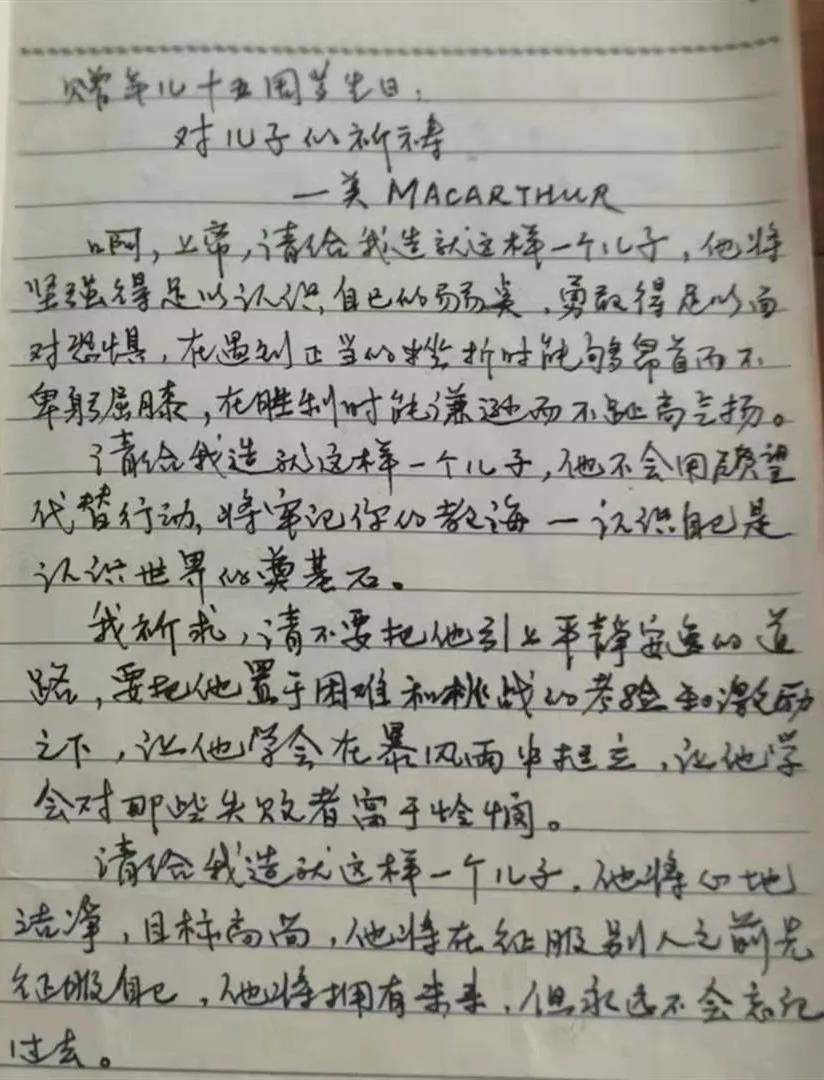 赠年儿十五周岁生日：
对儿子的祈祷
—美 MACARTHUR
啊，上帝，请给我造就这样一个儿子，他将
坚强得足以认识自己的弱点，勇敢得足以面
对恐惧，在遇到正当的挫折时能够昂首而不
卑躬屈膝，在胜利时能谦逊而不趾高气扬。
请给我造就这样一个儿子，他不会用愿望
代替行动，将牢记你的教诲—认识自己是
认识世界的奠基石。
我祈求，请不要把他引上平静安逸的道
路，要把他置于困难和挑战的考验和激励
之下，让他学会在暴风雨中挺立，让他学
会对那些失败者富于怜悯。
请给我造就这样一个儿子，他将心地
洁净，目标高尚，他将在征服别人之前先
征服自己，他将拥有未来，但永远不会忘记
过去。